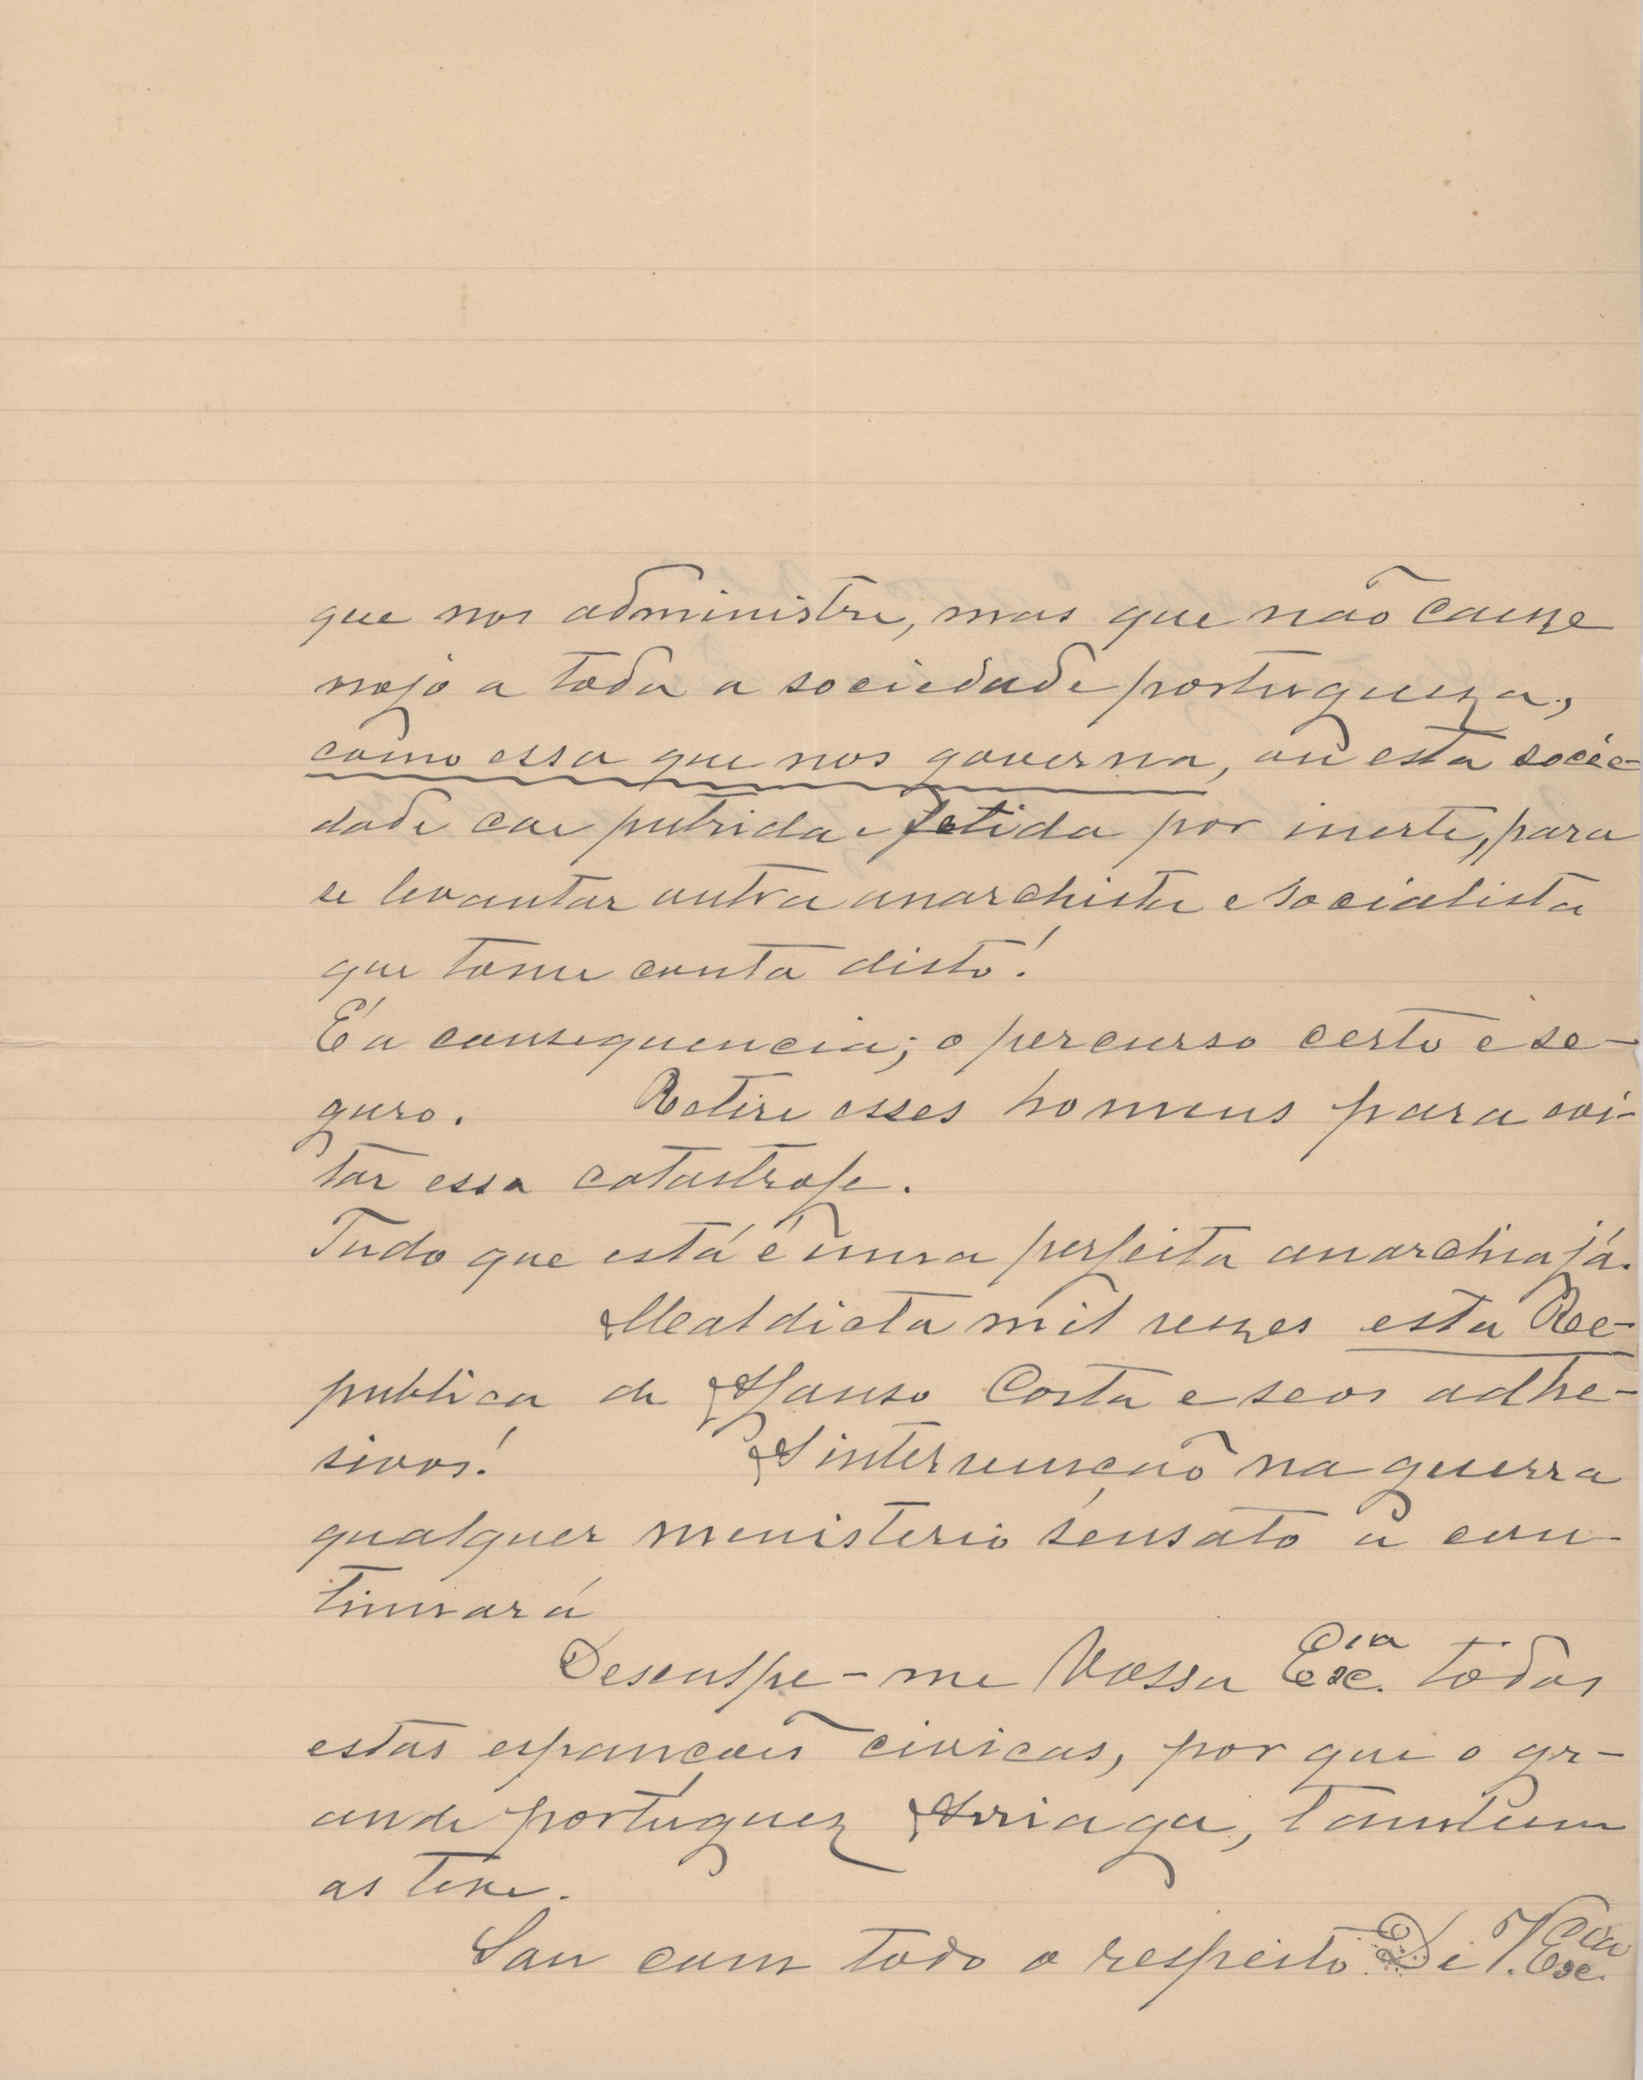 que nos administre, mas que não cauze
nojo a toda a sociedade portugueza,
como essa que nos governa, ou esta socie-
dade cae putrida e fetida por inerte, para
se levantar outra anarchista e socialista
que tome conta disto!
É a consequencia; o percurso certo e se-
guro. Retire esses homens para evi-
tar essa catastrofe.
Tudo que está é uma perfeita anarchia já.
Maldicta mil vezes esta Re-
publica de Afonso Costa e seos adhe-
sivos! A intervenção na guerra
qualquer menisterio sensato a con-
tinuará
Desculpe-me Vossa Exc.cia todas
estas espançoes civicas, por que o gr-
ande portuguez Arriaga, tambem
as teve.
Sou com todo o respeito De V. Exc.cia